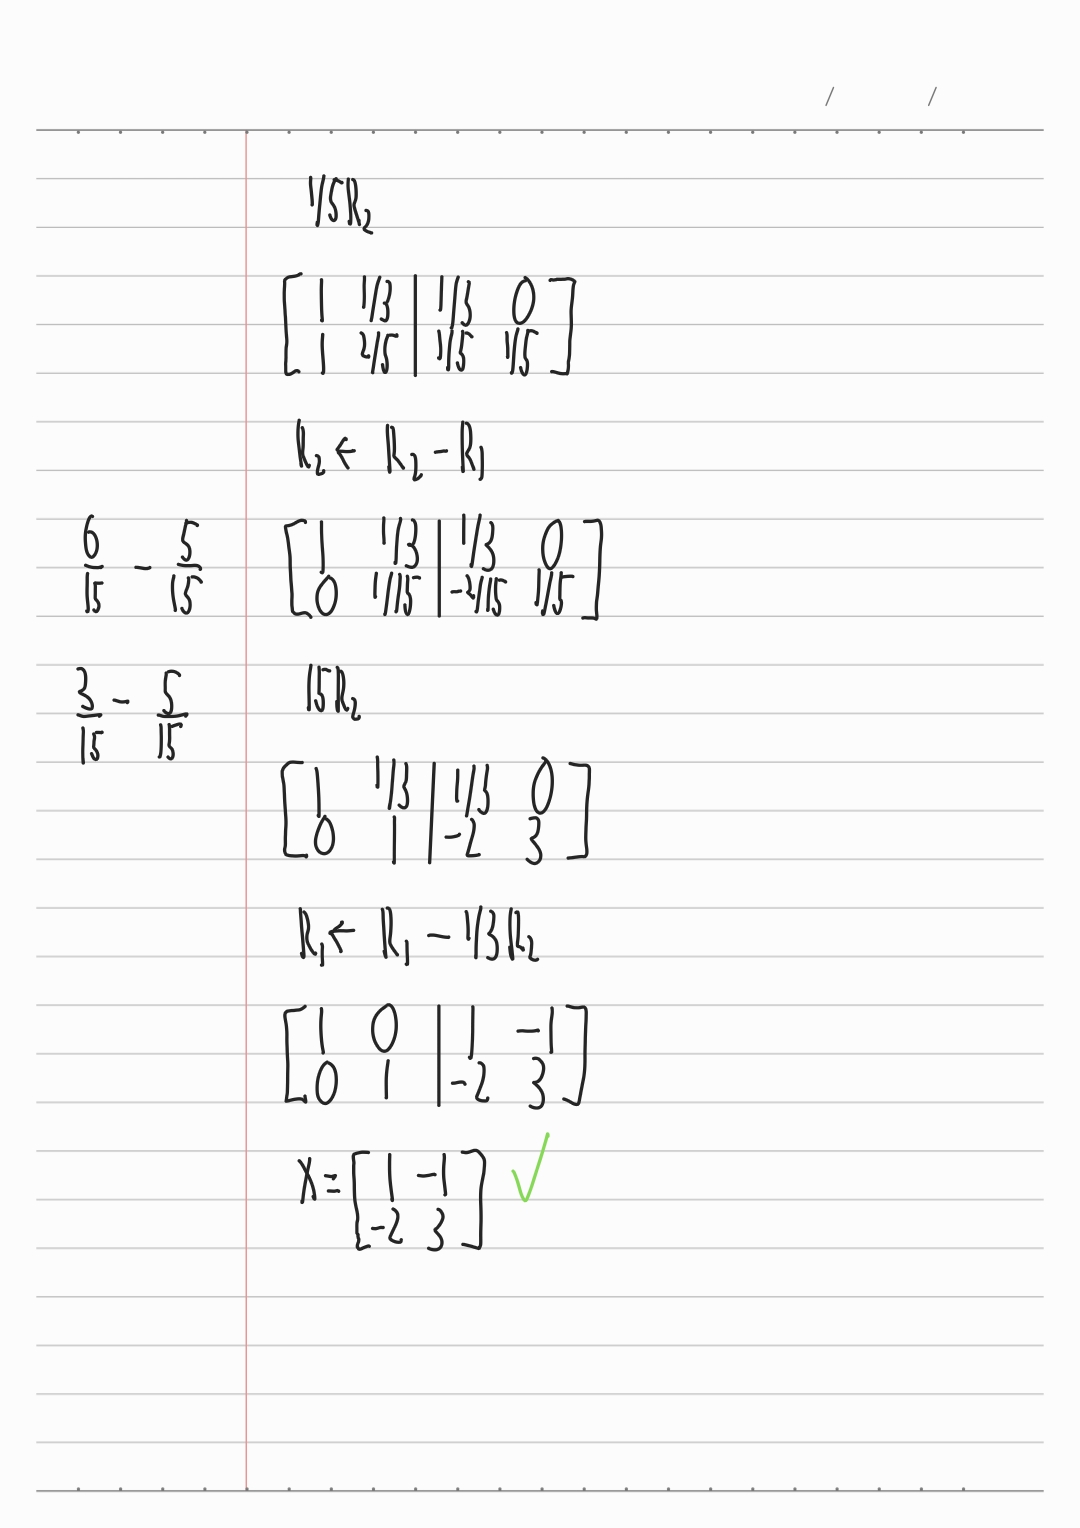 / /
1/5R₂
[ 1 1/3 | 1/3 0 ]
[ 1 2/5 | 1/5 1/5 ]
R₂ ← R₂ - R₁
6/15 - 5/15
[ 1 1/3 | 1/3 0 ]
[ 0 1/15 | -2/15 1/5 ]
3/15 - 5/15
15R₂
[ 1 1/3 | 1/3 0 ]
[ 0 1 | -2 3 ]
R₁ ← R₁ - 1/3R₂
[ 1 0 | 1 -1 ]
[ 0 1 | -2 3 ]
X = [ 1 -1 ] ✓
[ -2 3 ]